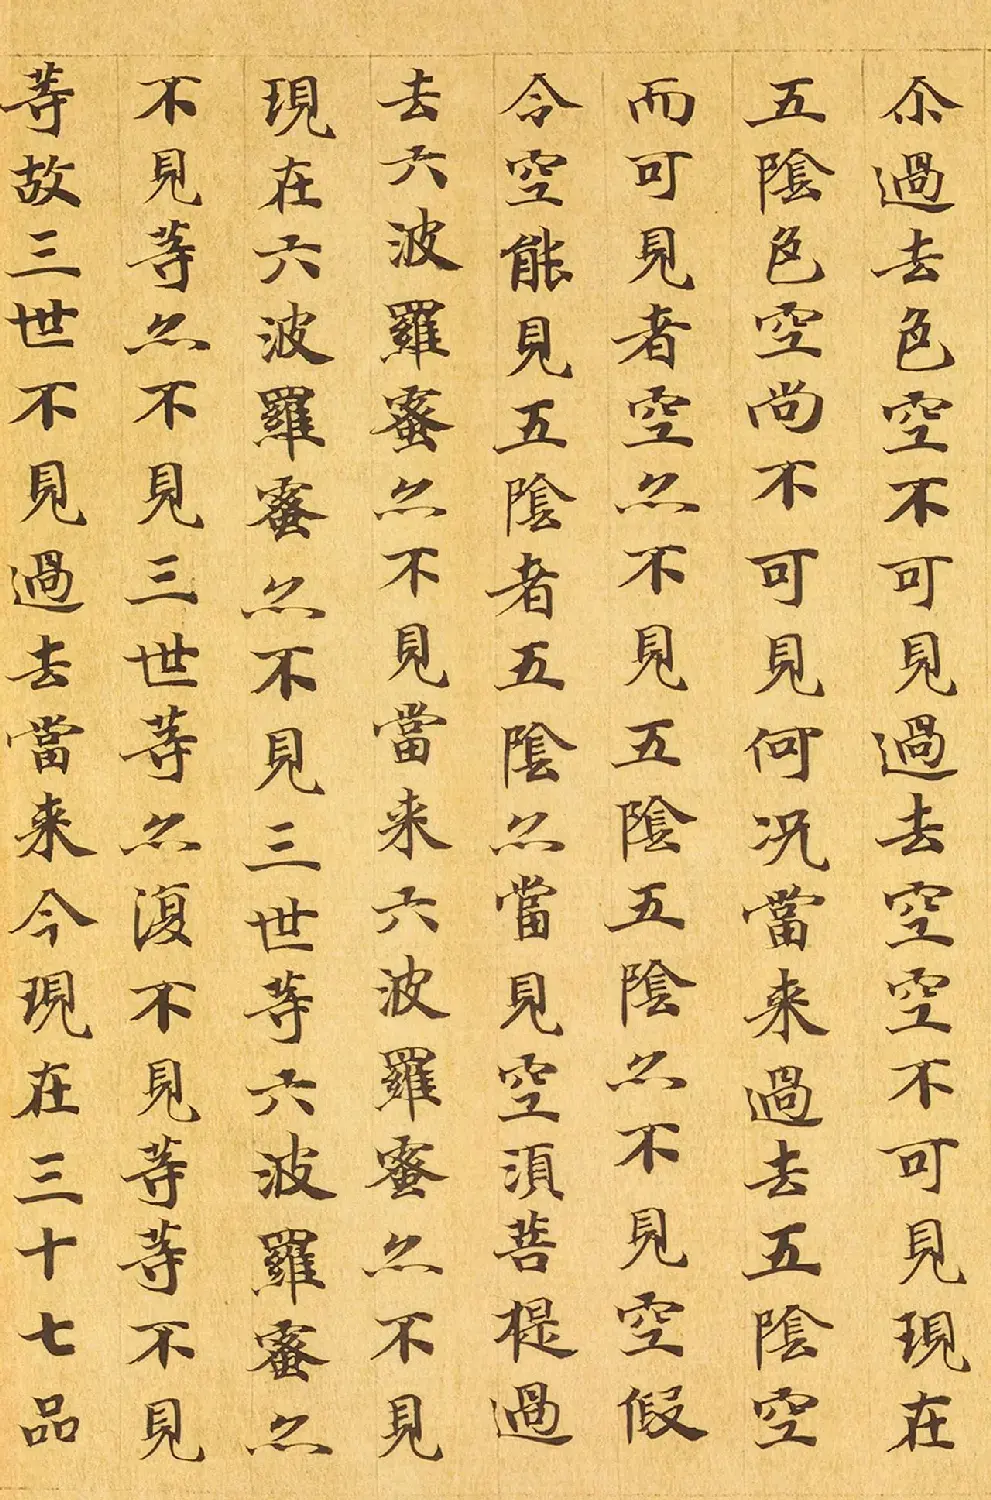 尒過去色空不可見過去空空不可見現在
五陰色空尚不可見何況當来過去五陰空
而可見者空亦不見五陰五陰亦不見空假
令空能見五陰者五陰亦當見空須菩提過
去六波羅蜜亦不見當来六波羅蜜亦不見
現在六波羅蜜亦不見三世等六波羅蜜亦
不見等亦不見三世等亦復不見等等不見
等故三世不見過去當来今現在三十七品